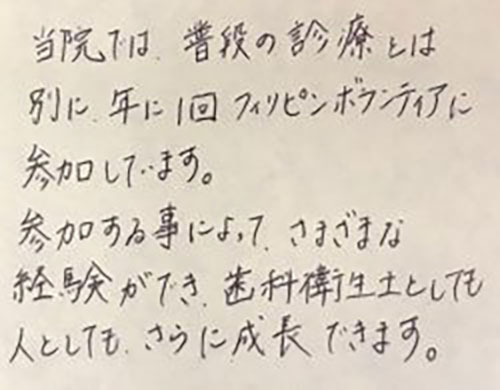 当院では、普段の診療とは
別に、年に1回フィリピンボランティアに
参加しています。
参加する事によって、さまざまな
経験ができ、歯科衛生士としても
人としても、さらに成長できます。